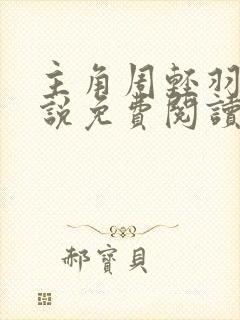 主角周輕羽
說免費閱讀
郝寶貝